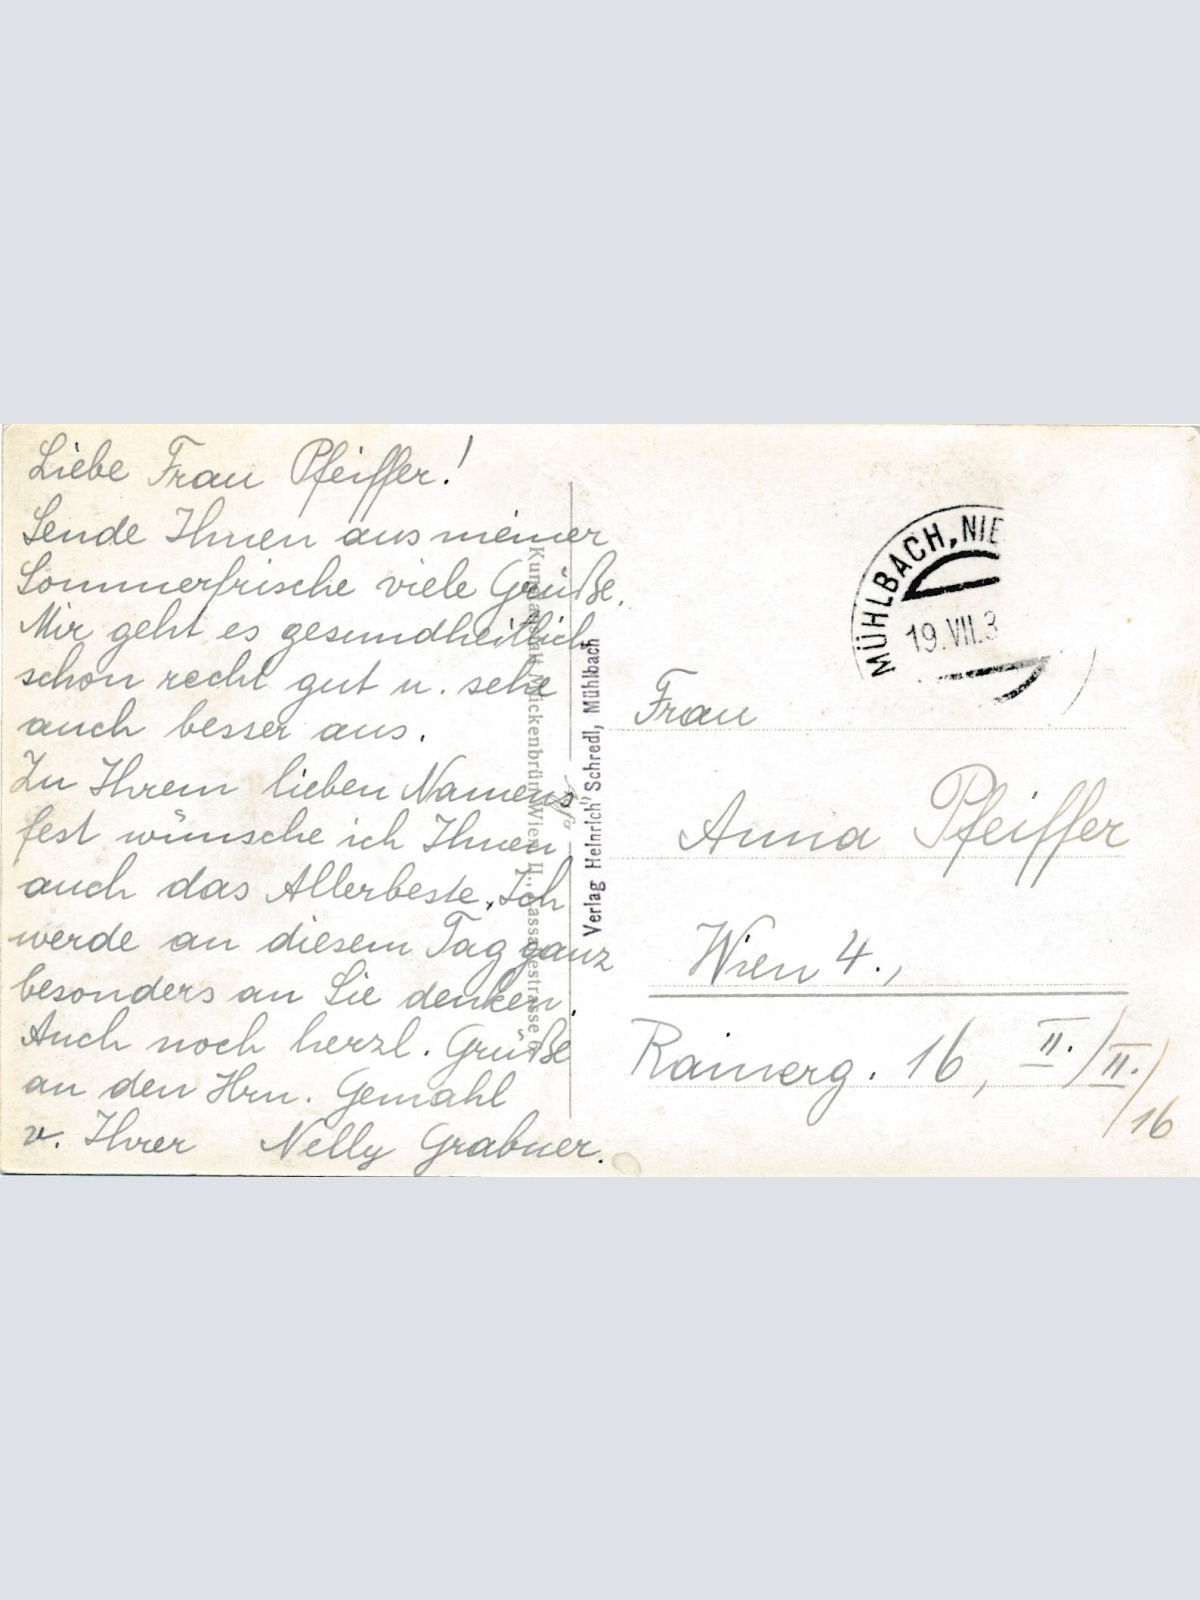 Liebe Frau Pfeiffer!
Sende Ihnen aus meiner
Sommerfrische viele Grüße.
Mir geht es gesundheitlich
schon recht gut u. sehe
auch besser aus.
Zu Ihrem lieben Namens
fest wünsche ich Ihnen
auch das Allerbeste. Ich
werde an diesem Tag ganz
besonders an Sie denken.
Auch noch herzl. Grüße
an den Hrn. Gemahl
v. Ihrer Nelly Grabner.
Kunstanstalt Wien II.,
Verlag Heinrich Schredl, Mühlbach
MÜHLBACH, NIE
19.VII.3
Frau
Anna Pfeiffer
Wien 4.,
Rainerg. 16, II./II./16